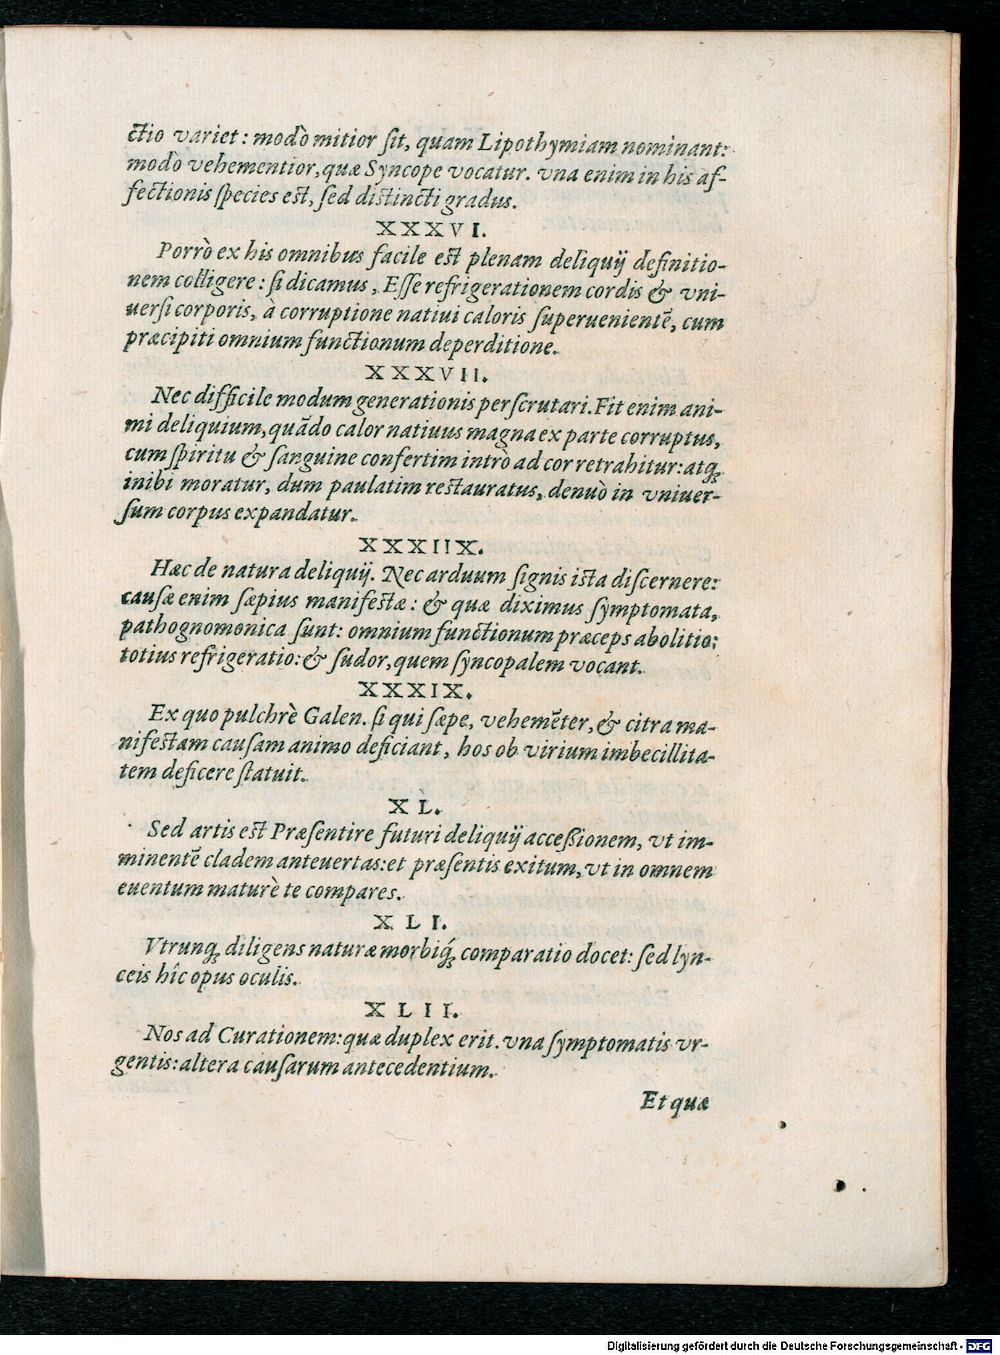 ctio variet: modò mitior sit, quam Lipothymiam nominant:
modò vehementior, quæ Syncope vocatur. vna enim in his af-
fectionis species est, sed distincti gradus.
XXXVI.
Porrò ex his omnibus facile est plenam deliquij definitio-
nem colligere: si dicamus, Esse refrigerationem cordis & vni-
uersi corporis, à corruptione natiui caloris superuenientē, cum
præcipiti omnium functionum deperditione.
XXXVII.
Nec difficile modum generationis perscrutari. Fit enim ani-
mi deliquium, quādo calor natiuus magna ex parte corruptus,
cum spiritu & sanguine confertim intrò ad cor retrahitur: atq́;
inibi moratur, dum paulatim restauratus, denuò in vniuer-
sum corpus expandatur.
XXXIIX.
Hæc de natura deliquij. Nec arduum signis ista discernere:
causæ enim sæpius manifestæ: & quæ diximus symptomata,
pathognomonica sunt: omnium functionum præceps abolitio:
totius refrigeratio: & sudor, quem syncopalem vocant.
XXXIX.
Ex quo pulchrè Galen. si qui sæpe, vehemēter, & citra ma-
nifestam causam animo deficiant, hos ob virium imbecillita-
tem deficere statuit.
XL.
Sed artis est Præsentire futuri deliquij accessionem, vt im-
minentē cladem anteuertas: et præsentis exitum, vt in omnem
euentum maturè te compares.
XLI.
Vtrunq; diligens naturæ morbiq́; comparatio docet: sed lyn-
ceis hîc opus oculis.
XLII.
Nos ad Curationem: quæ duplex erit. vna symptomatis vr-
gentis: altera causarum antecedentium.
Et quæ
Digitalisierung gefördert durch die Deutsche Forschungsgemeinschaft - DFG